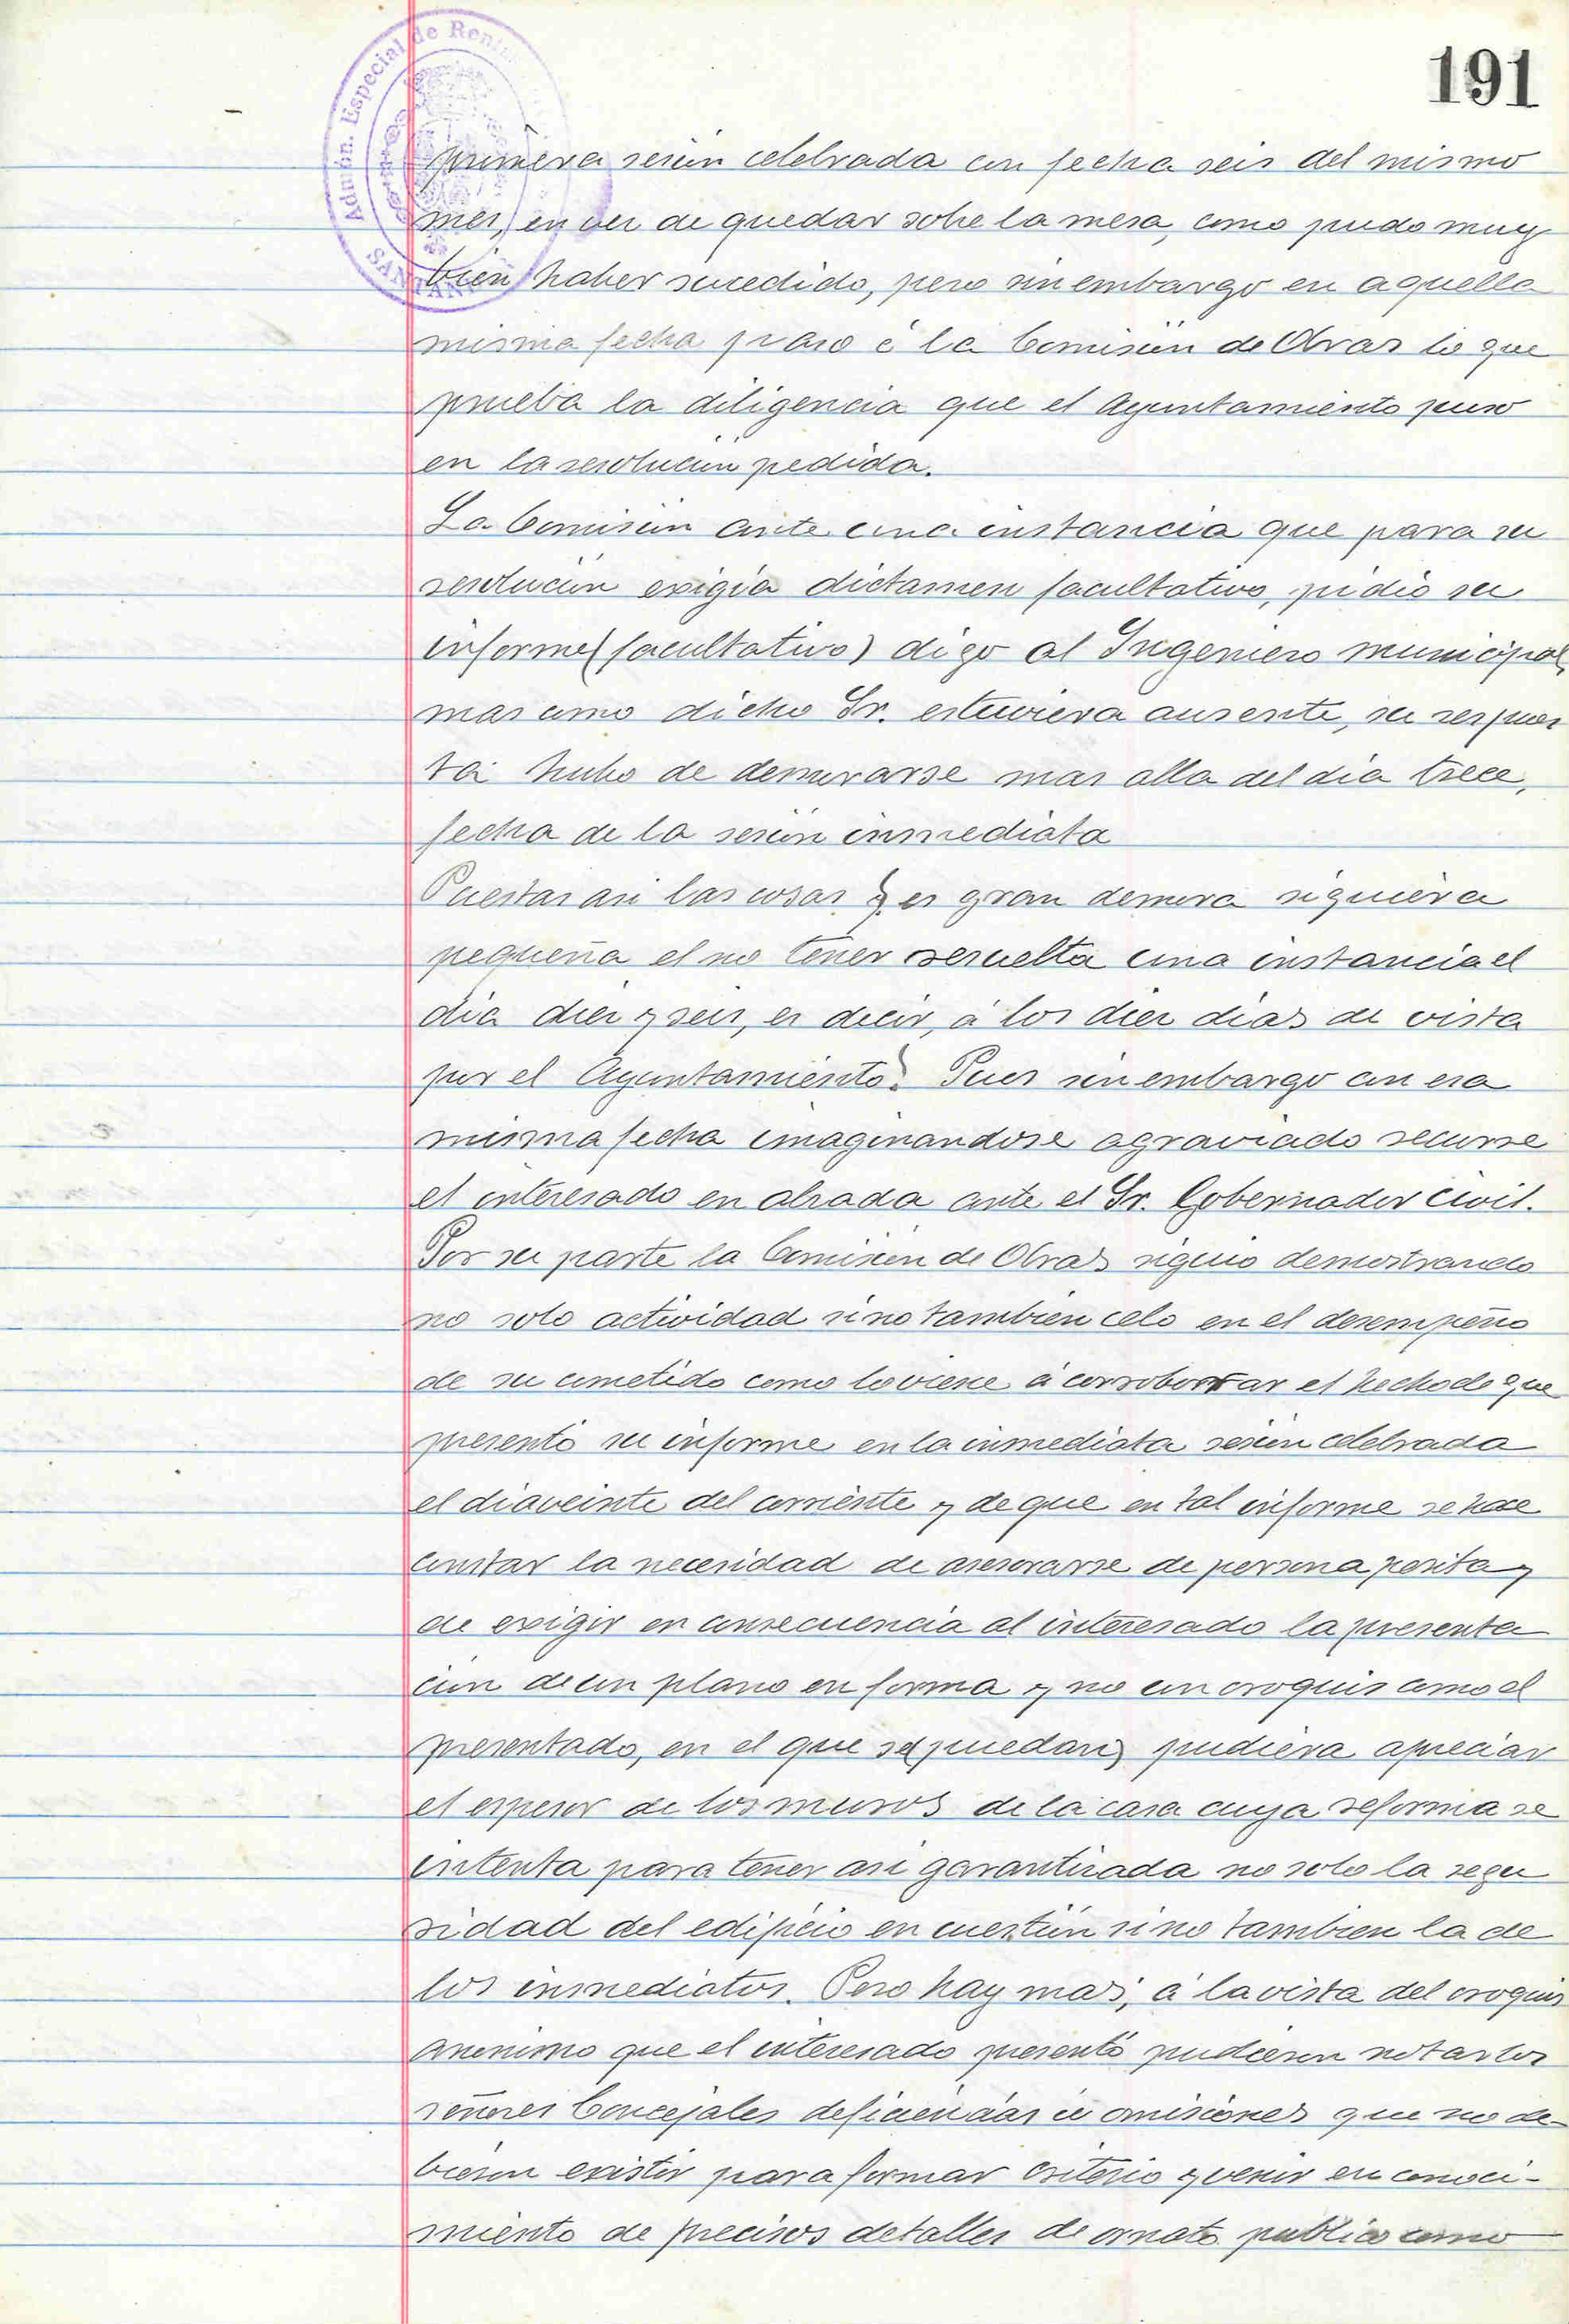 191
Admón. Especial de Rent
SANTAN
primera sesión celebrada con fecha seis del mismo
mes, en vez de quedar sobre la mesa, como pudo muy
bien haber sucedido, pero sin embargo en aquella
misma fecha paso á la Comisión de Obras lo que
prueba la diligencia que el Ayuntamiento puso
en la resolución pedida.
La Comisión ante una instancia que para su
resolución exigia dictamen facultativo, pidió su
informe (facultativo) digo al Ingeniero municipal,
mas como dicho Sr. estuviera ausente, su respues
ta hubo de demorarse mas alla del dia trece,
fecha de la sesión inmediata
Puestas asi las cosas ¿es gran demora siquiera
pequeña el no tener resuelta una instancia el
dia diez y seis, es decir, á los diez dias de vista
por el Ayuntamiento? Pues sin embargo con esa
misma fecha imaginandose agraviado recurre
el interesado en alzada ante el Sr. Gobernador civil.
Por su parte la Comisión de Obras siguió demostrando
no solo actividad sino tambien celo en el desempeño
de su cometido como lo viene á corroborar el hecho de que
presentó su informe en la inmediata sesión celebrada
el dia veinte del corriente y de que en tal informe se hace
constar la necesidad de asesorarse de persona perita y
de exigir en consecuencia al interesado la presenta
ción de un plano en forma y no un croquis como el
presentado, en el que se (puedan) pudiera apreciar
el espesor de los muros de la casa cuya reforma se
intenta para tener asi garantizada no solo la segu
ridad del edificio en cuestión sino tambien la de
los inmediatos. Pero hay mas, á la vista del croquis
anonimo que el interesado presentó pudieron notar los
señores Concejales deficiencias ú omisiones que no de-
bieron existir para formar criterio y venir en conoci-
miento de precisos detalles de ornato publico como